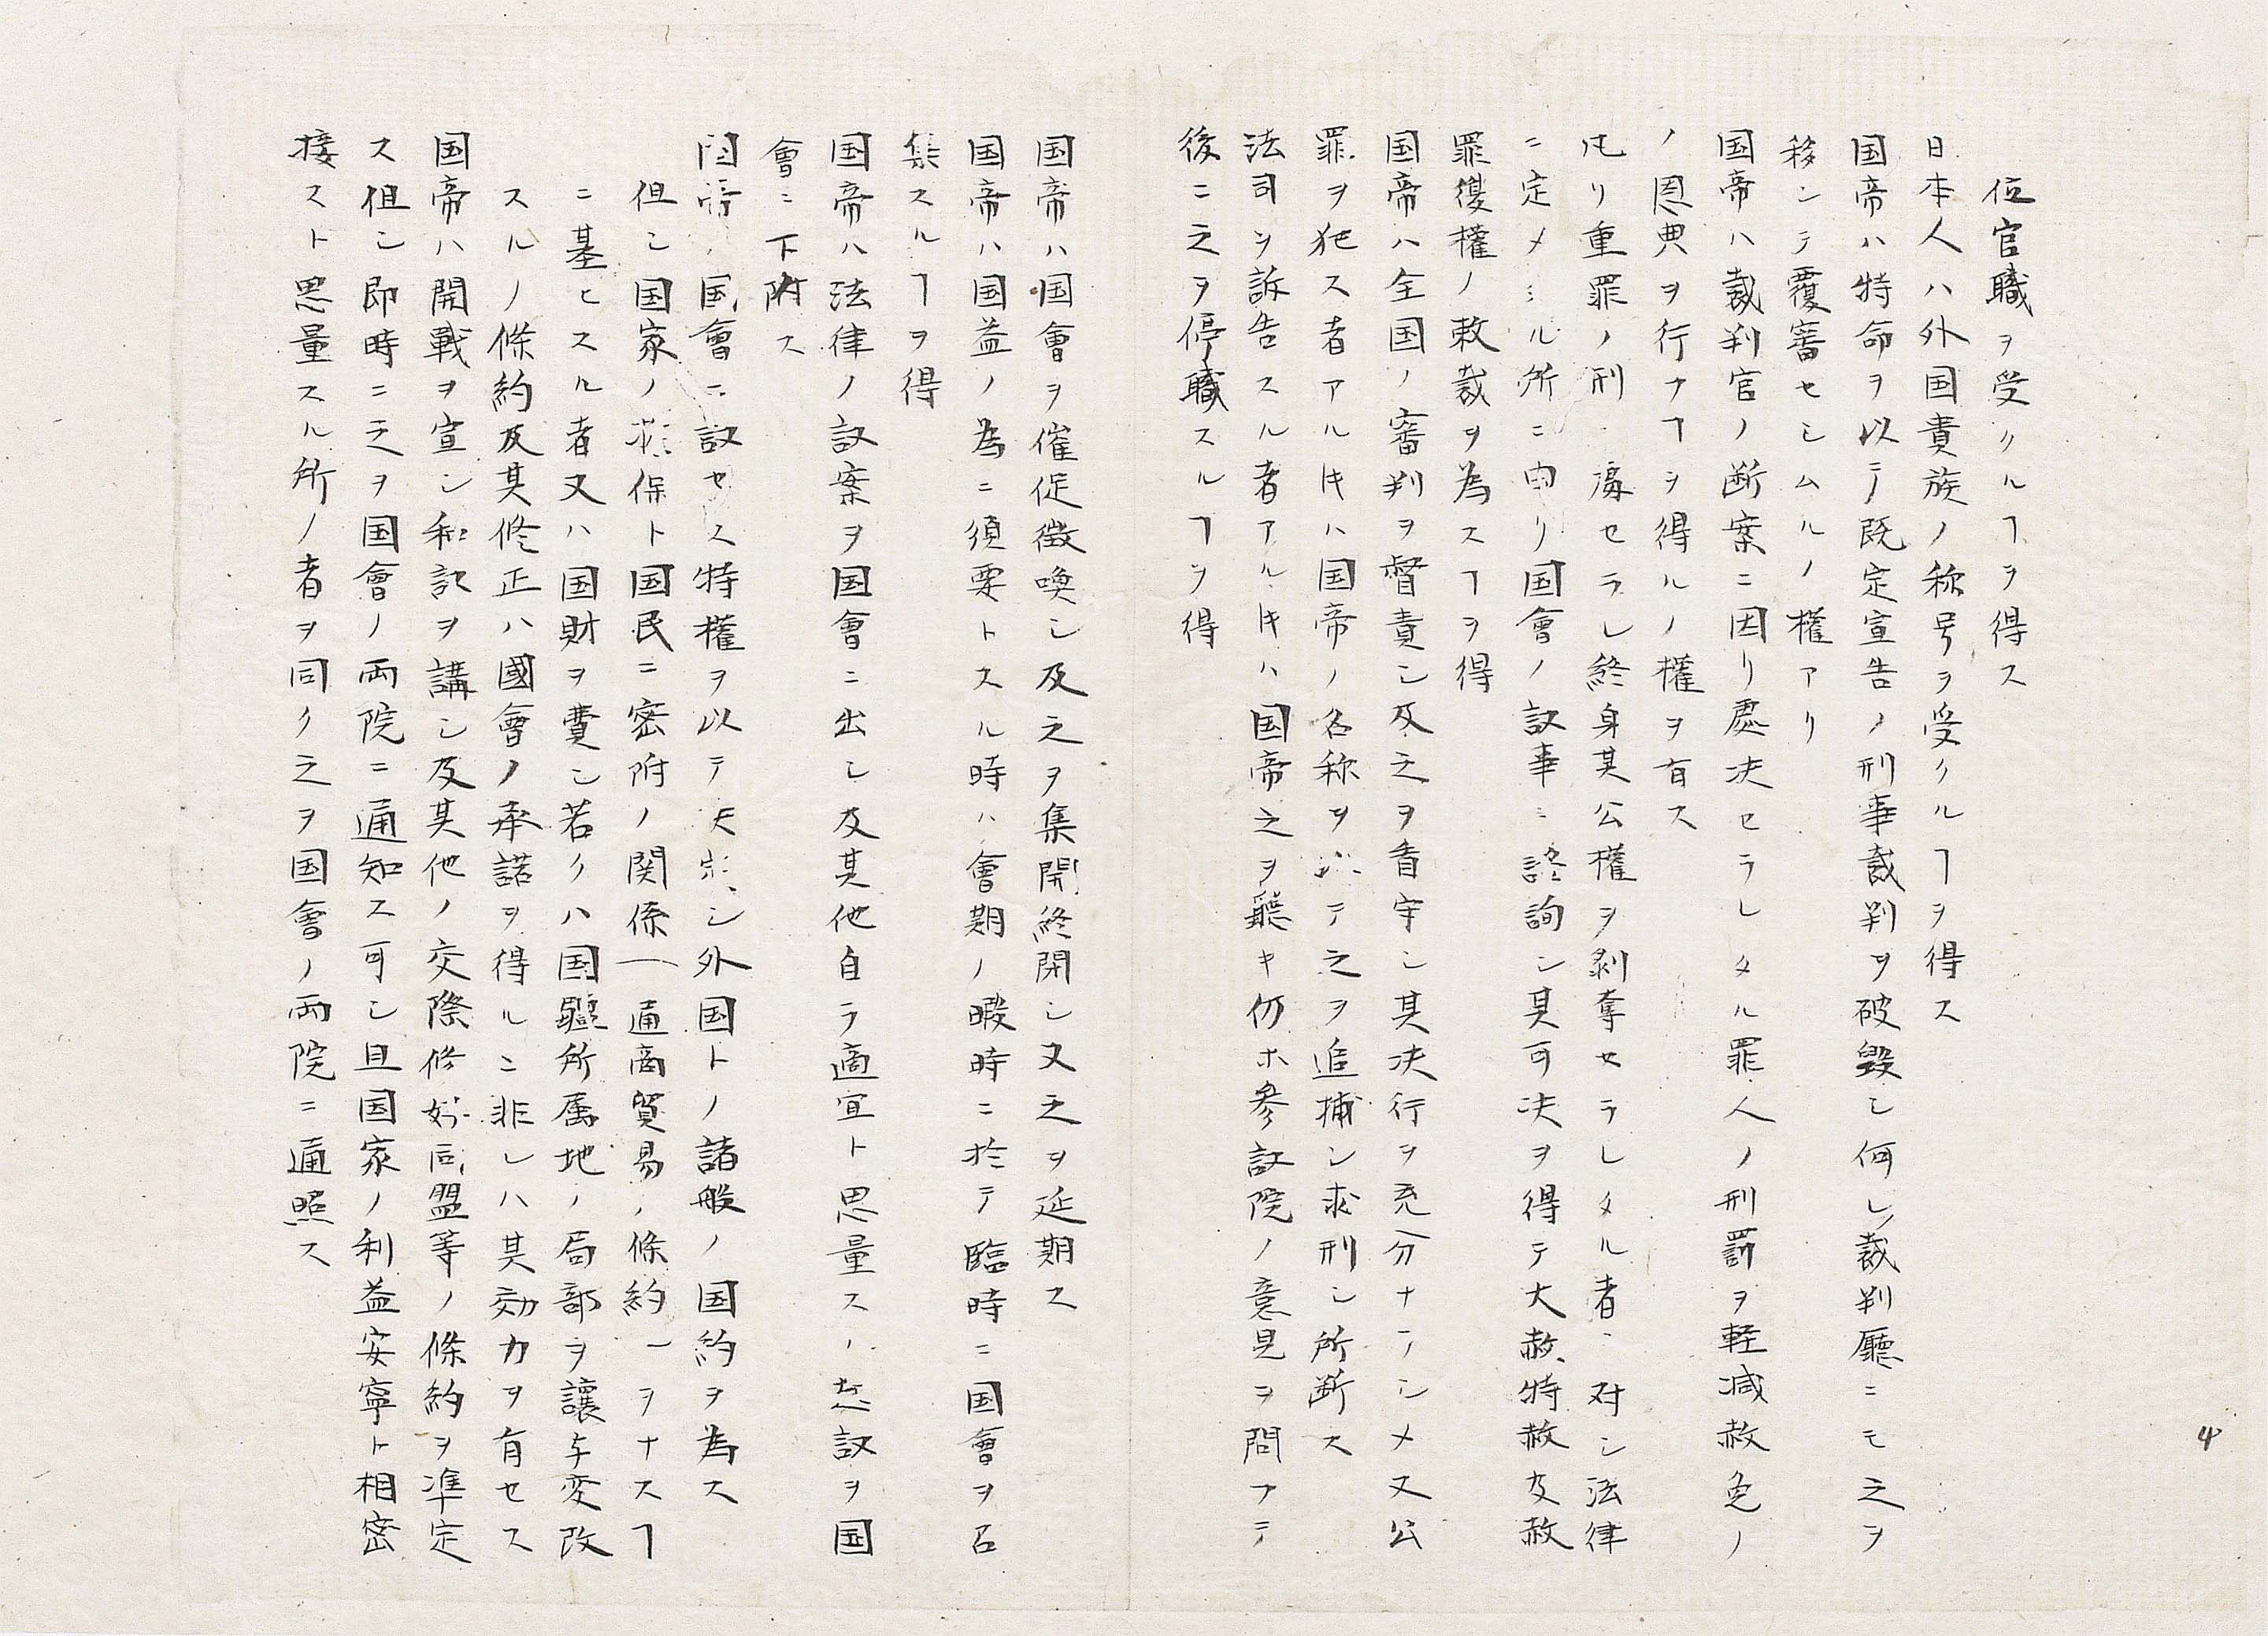 位官職ヲ受クルヿヲ得ス
日本人ハ外国貴族ノ称号ヲ受クルヿヲ得ス
国帝ハ特命ヲ以テ既定宣告ノ刑事裁判ヲ破毀シ何レノ裁判廳ニモ之ヲ
移シテ覆審セシムルノ權アリ
国帝ハ裁判官ノ断案ニ因リ處决セラレタル罪人ノ刑罰ヲ軽减赦免ノ
ノ恩典ヲ行ナフヿヲ得ルノ權ヲ有ス
凡リ重罪ノ刑 處セラレ終身其公權ヲ剥奪セラレタル者ニ対シ法律
ニ定メミル所ニ由リ国會ノ議事ニ諮詢シ其可决ヲ得テ大赦特赦及赦
罪復權ノ敕裁ヲ為スヿヲ得
国帝ハ全国ノ審判ヲ督責シ及之ヲ看守シ其决行ヲ充分ナラシメ又公
罪ヲ犯ス者アルキハ国帝ノ名称ヲ以テ之ヲ追捕シ求刑シ所断ス
法司ヲ訴告スル者アルキハ国帝之ヲ聽キ仍ホ參議院ノ意見ヲ問フテ
後ニ之ヲ停職スルヿヲ得
国帝ハ国會ヲ催促徴喚シ及之ヲ集開終閉シ又之ヲ延期ス
国帝ハ国益ノ為ニ須要トスル時ハ會期ノ暇時ニ於テ臨時ニ国會ヲ召
集スルヿヲ得
国帝ハ法律ノ議案ヲ国會ニ出シ及其他自ラ適宜ト思量スル起議ヲ国
會ニ下附ス
国帝ハ国會ニ議セス特權ヲ以テ决定シ外国トノ諸般ノ国約ヲ為ス
但シ国家ノ担保ト国民ニ密附ノ関係(通商貿易ノ條約)ヲナスヿ
ニ基ヒスル者又ハ国財ヲ費シ若クハ国疆所属地ノ局部ヲ讓与変改
スルノ條約及其修正ハ國會ノ承諾ヲ得ルニ非レハ其効力ヲ有セス
国帝ハ開戰ヲ宣シ和議ヲ講シ及其他ノ交際修好同盟等ノ條約ヲ準定
ス但シ即時ニ之ヲ国會ノ両院ニ通知ス可シ且国家ノ利益安寧ト相密
接スト思量スル所ノ者ヲ同ク之ヲ国會ノ両院ニ通照ス
4